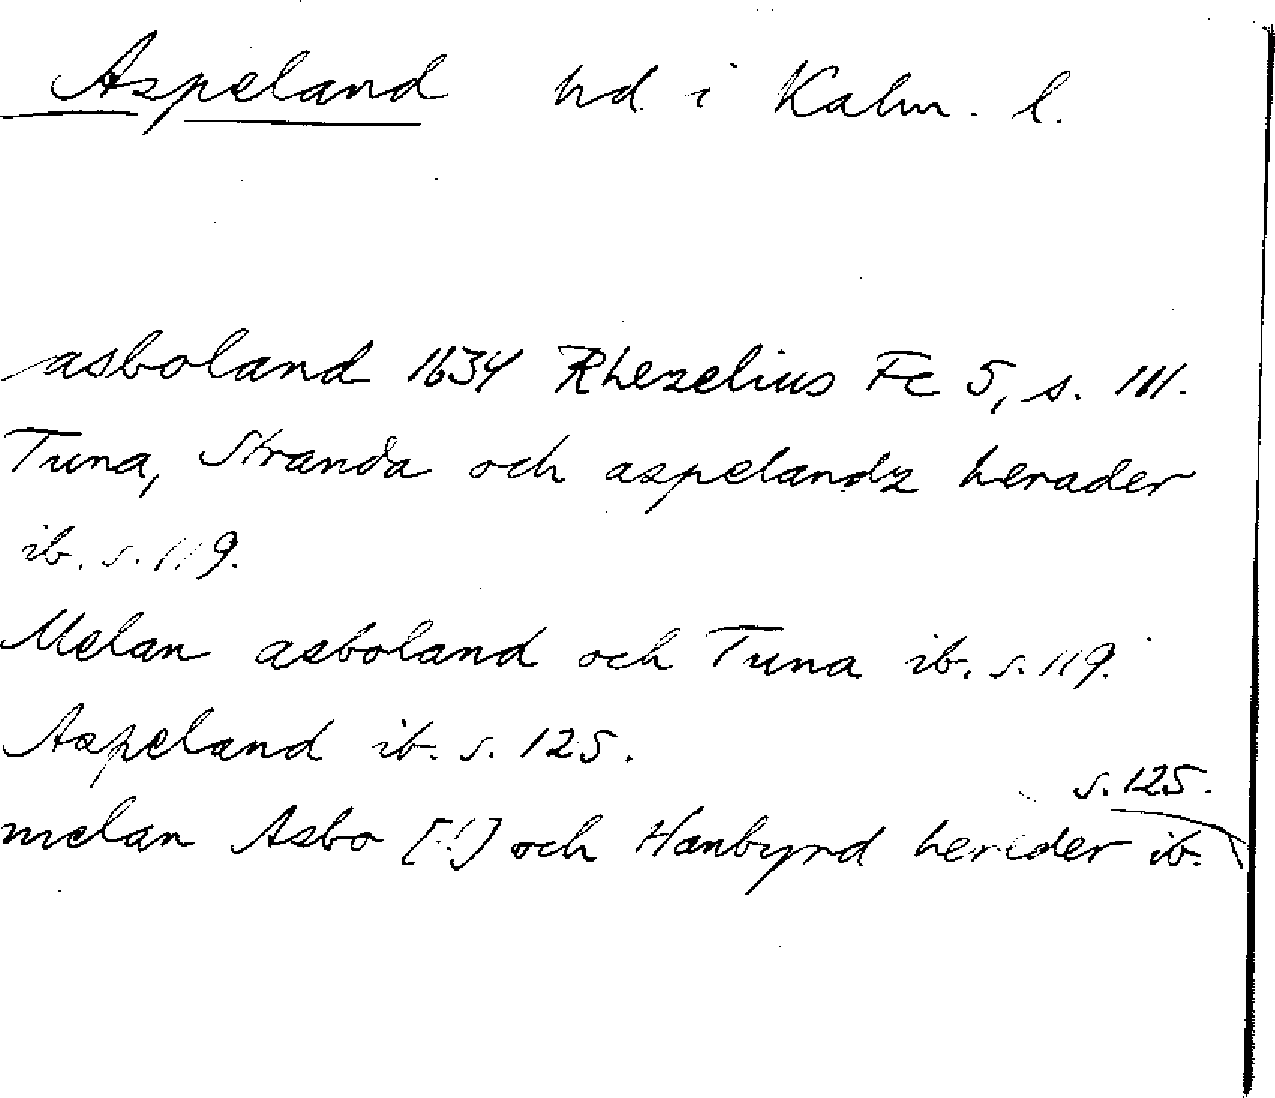 Aspeland hd i Kalm. l.
asboland 1634 Rhezelius Fc 5, s. 111.
Tuna, Stranda och aspelandz herader
ib. s. 119.
Melan asboland och Tuna ib. s. 119.
Aspeland ib. s. 125.
melan Asbo [!] och Hanbyrd hereder ib.
s. 125.